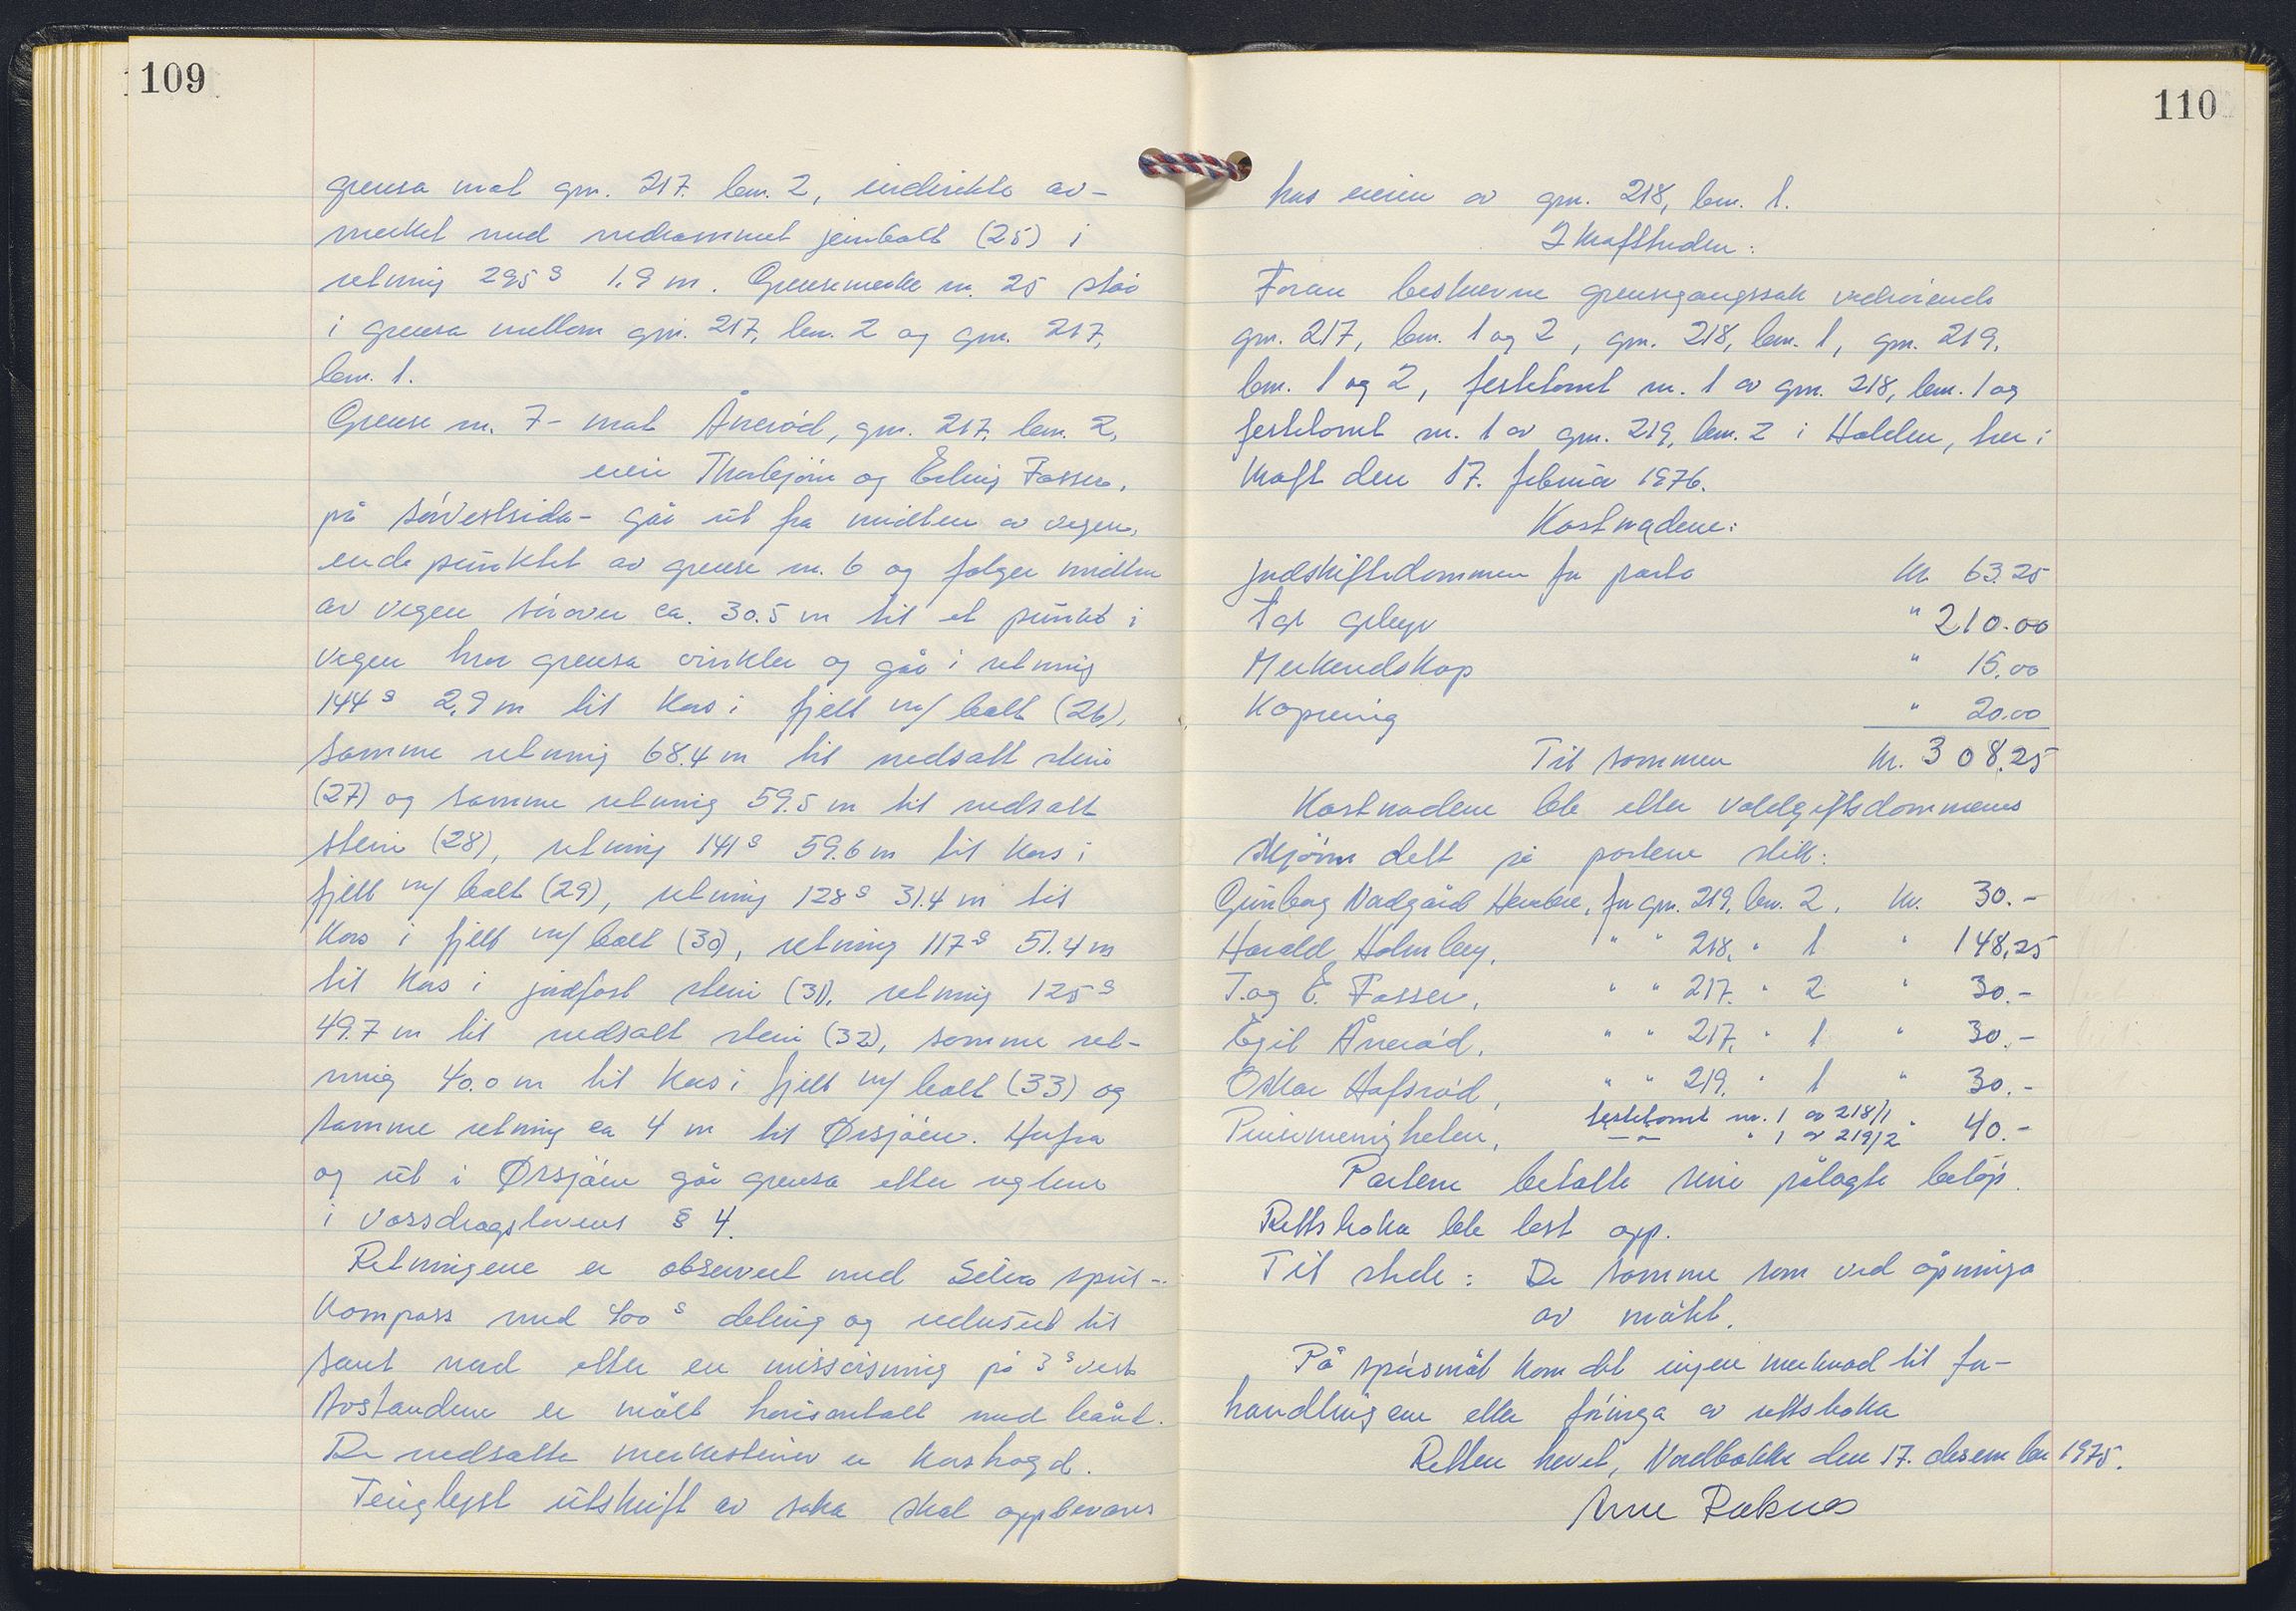 109
grensa mot gnr. 217. bnr. 2, indirekte av-
merket med nedrammet jernbolt (25) i
retning 295 g 1,9 m. Grensemerke nr. 25 står
i grensa mellom gnr. 217, bnr. 2 og gnr. 217,
bnr. 1.
Grense nr. 7 - mot Ånerød, gnr. 217, bnr. 2,
eier Thorbjørn og Erling Fosser,
på sørvestsida - går ut fra midten av vegen,
endepunktet av grense nr. 6 og følger midten
av vegen sørover ca. 30.5 m til et punkt i
vegen hvor grensa vinkler og går i retning
144 g 2,9 m til kors i fjell m/ bolt (26),
samme retning 68.4 m til nedsatt stein
(27) og samme retning 59.5 m til nedsatt
stein (28), retning 141 g 59.6 m til kors i
fjell m/ bolt (29), retning 128 g 31.4 m til
kors i fjell m/ bolt (30), retning 117 g 51.4 m
til kors i jordfast stein (31), retning 125 g
49.7 m til nedsatt stein (32), samme ret-
ning 40.0 m til kors i fjell m/ bolt (33) og
samme retning ca 4 m til Ørsjøen. Herfra
og ut i Ørsjøen går grensa etter reglene
i vassdragslovens § 4.
Retningene er observert med Silva speil-
kompass med 400 g deling og redusert til
sant nord etter en missvisning på 3 g vest.
Avstandene er målt horisontalt med bånd.
De nedsatte merkesteiner er korshogd.
Tinglyst utskrift av saka skal oppbevares
110
hos eieren av gnr. 218, bnr. 1.
Ikrafttreden:
Foran beskrevne grensegangssak vedrørende
gnr. 217, bnr. 1 og 2, gnr. 218, bnr. 1, gnr. 219,
bnr. 1 og 2, festetomt nr. 1 av gnr. 218, bnr. 1 og
festetomt nr. 1 av gnr. 219, bnr. 2 i Halden, trer i
kraft den 17. februar 1976.
Kostnadene:
Jordskiftedommeren for porto kr. 63.25
Tgl. gebyr " 210.00
Merkeredskap " 15,00
Kopiering " 20.00
Til sammen kr. 308,25
Kostnadene ble etter voldgiftsdommerens
skjønn delt på partene slik:
Gunborg Nordgård Herrebrø, for gnr. 219, bnr. 2, kr. 30.-
Harald Holmberg, " " 218, " 1 " 148,25
T. og E. Fosser, " " 217. " 2 " 30.-
Egil Ånerød, " " 217, " 1 " 30.-
Oskar Hafsrød, " " 219. " 1 " 30.-
Pinsemenigheten, festetomt nr. 1 av 218/1
— " — " 1 av 219/2 " 40.-
Partene betalte sine pålagte beløp.
Rettsboka ble lest opp.
Til stede: De samme som ved åpninga
av møtet.
På spørsmål kom det ingen merknad til for-
handlingene eller føringa av rettsboka
Retten hevet, Nordbakke den 17. desember 1975.
Arne Raknes